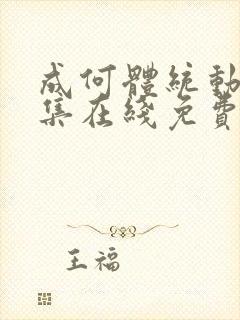 成何體統動
集在綫免費
王福